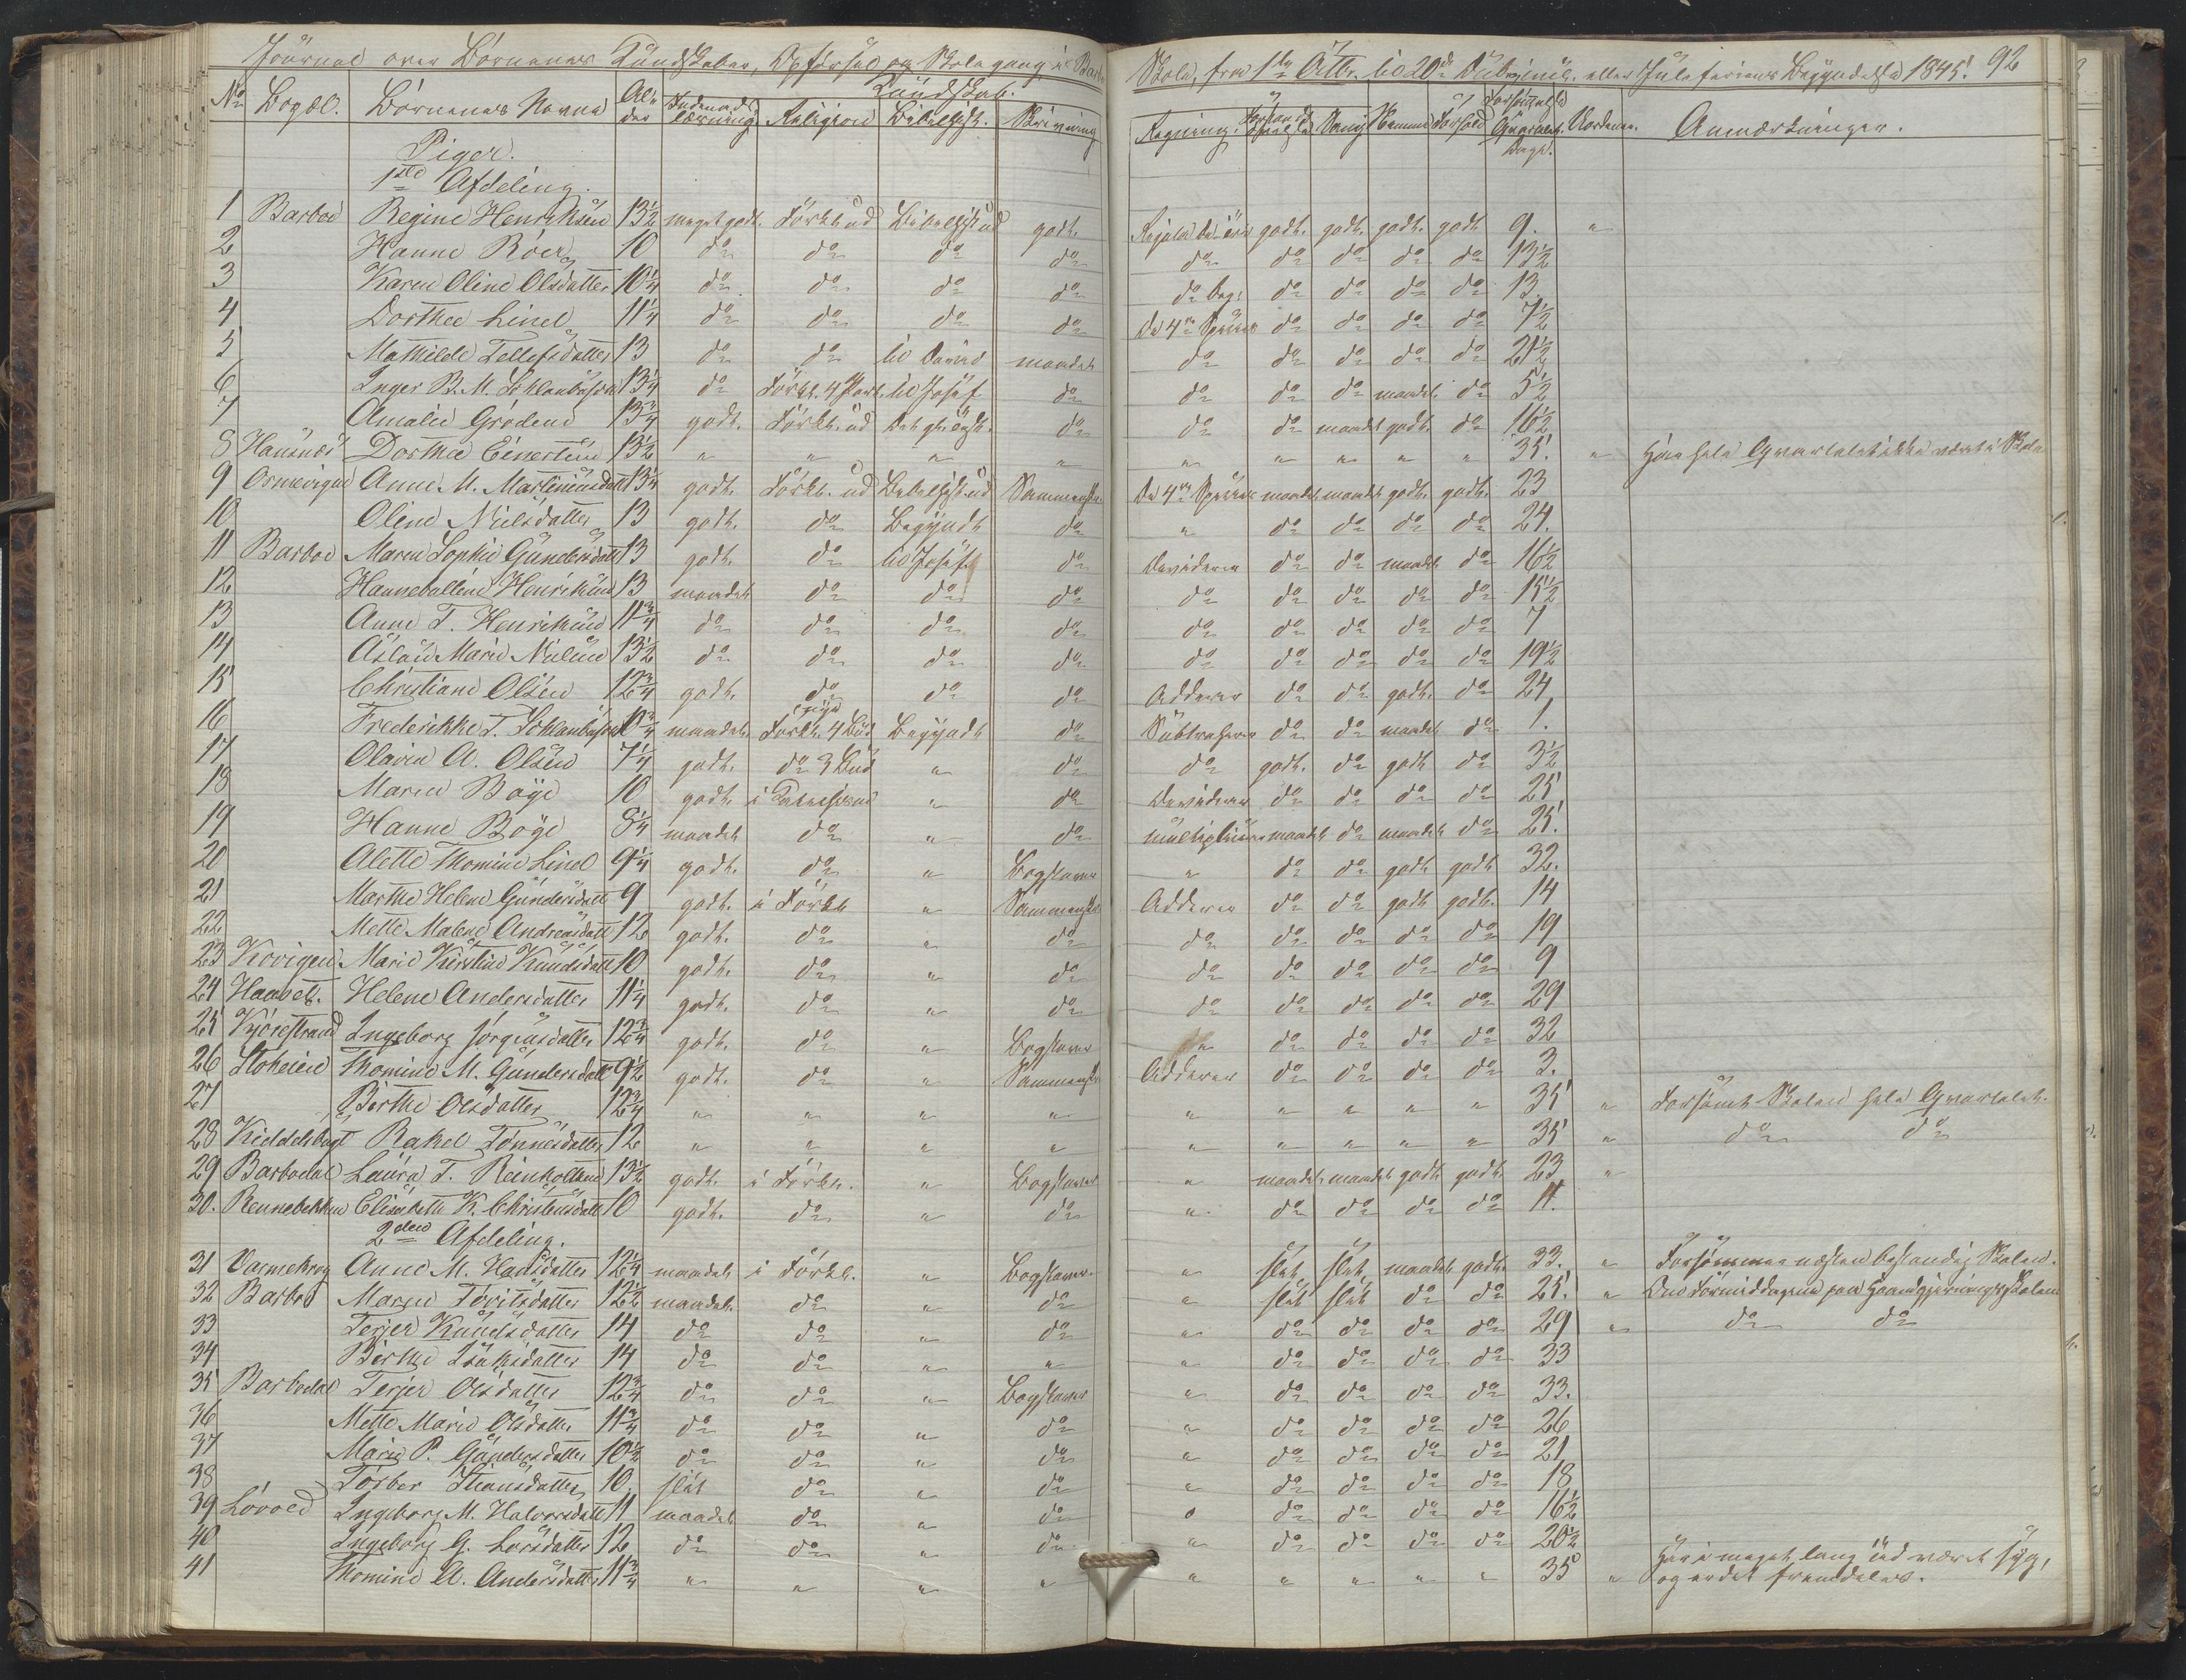 Journal over Börnenes Kundskaber, Opførsel og Skolegang i Barbo Skole, fra 1ste Octbr. til 20de Decbr. eller Juleferiens Begyndelse 1845. 92
No Bopæl. Börnenes Navne Alder Kundskab.
Indenadslæsning Religion Bibelhist. Skrivning Regning. Sang Nemme Forhold Forsømte Dage. Anmærkninger.
Piger.
1ste Afdeling.
1 Barboe Regine Henriksen 13½ meget godt. Forkl. ud Bibelhist ud godt. Regula de tri godt. godt. godt. godt 9. "
2 Hanne Boer 10 do do do do do do do do do 13½
3 Karen Oline Olsdatter 10¼ do do do do do beg: do do do do 13.
4 Dorthee Linel 11¼ do do do do De 4re Species do do do do 7½
5 Mathilde Tellefsdatter 13 do do til David maadel. do do do do do 21½
6 Inger B. M. 13¼ do Forkl. 4 Part. til Josef do do do do maadel. do 5½
7 Amalie Grödene 13¾ godt. Forkl. ud do do do maadel godt. do 16½
8 Dorthe Einertsen 13½ " " " " " " " " " 35. " Hun hele Qvartalet ikke været i Skole
9 Anne M. Martiniusdatt 13¼ godt. Forkl. ud Bibelhist ud Sammenskr. De 4re Species maadel. maadel. godt. godt. 23
10 Oline Nielsdatter 13 godt. do Begyndt do " do do do do 24.
11 Barboe Maren Sophie Gundersdatt 13 godt. do til Josef do Dividerer do do maadel. do 16½
12 Henriksen 13 maadel. do do do do do do do do 15½
13 Anne T. Henriksen 11¾ do do do do do do do do do 7
14 Aslau Marie Nielsen 13½ do do do do do do do do do 19½
15 Christiane Olsen 12¾ godt. do do do Adderer do do godt. do 24,
16 Frederikke T. 10¾ maadel. Forkl. 4 Bud Begyndt do Subtraherer do do maadel. do 1.
17 Olavia A. Olsen 7¼ godt. do 3 Bud " do do godt. do godt do 3½
18 Maren Böye 10 godt. i " do Dividerer do do do do 25
19 Hanne Böye 8¼ maadel. do " do multiplicerer maadel. do maadel. do 25.
20 Alette Thomine Linel 9¼ godt. do " Bogstaver " do do godt godt 32.
21 Marthe Helene Gundersdatt 9 godt. i Forkl. " Sammenskr. Adderer do do godt godt. 14
22 Mette Malene Andreasdatt 12 godt. do " do do do do do do 19
23 Krøigen Marie Kirstine Knudsdatt 10 godt. do " do do do do do do 9
24 Haavet. Helene Andersdatter 11¼ godt. do " do do do do do do 29
25 Kjørestrand Ingeborg Jörgensdatter 12¾ godt. do " Bogstaver " do do do do 32
26 Stokeien Thomine M. Gundersdatt 9½ godt. do " Sammenskr. Adderer do do do do 3.
27 Berthe Olsdatter 12¾ " " " " " " " " " 35 " Forsömt Skolen hele Qvartalet.
28 Rakel Tönnesdatter 12 " " " " " " " " " 35 " do do
29 Barbodal Laura T. Reinholtsen 13½ godt. i Forkl. " Bogstaver " maadel. maadel. godt. godt. 23 "
30. Rennebekken Elisabeth K. Christensdatt 10 godt. do " do " do do do do 11.
2den Afdeling.
31 Varmekrog Anne M. Hansdatter 12¼ maadel. i Forkl. " Bogstaver. " slet slet maadel. godt. 33. " Forsömmer næsten bestandig Skolen.
32 Barboe Maren 12½ maadel. do " do " slet slet do do 25. " Om Formiddagene paa Haandgjerningsskolen
33 Terjer Knudsdatter 14 do do " do " do do do do 29 " do do
34 Berthe Isaksdatter 14 do do " " " do do do do 33
35 Barbodal Terjer Olsdatter 12¾ do do " Bogstaver " do do do do 33.
36 Mette Marie Olsdatter 11¾ do do " do " do do do do 26
37 Marie P. Gundersdatter 10½ do do " do " do do do do 21
38 Torber 10. slet do " do " do do do do 18
39 Lövold Ingeborg M. Halvorsdatt 11 maadel. do " do " do do do do 16½
40 Ingeborg G. Larsdatter 12 do do " do " do do do do 20½
41 Thomine A. Andersdatter 11¾ " " " " " " " " " 35 " Har i meget lang tid været syg,
og er det fremdeles.